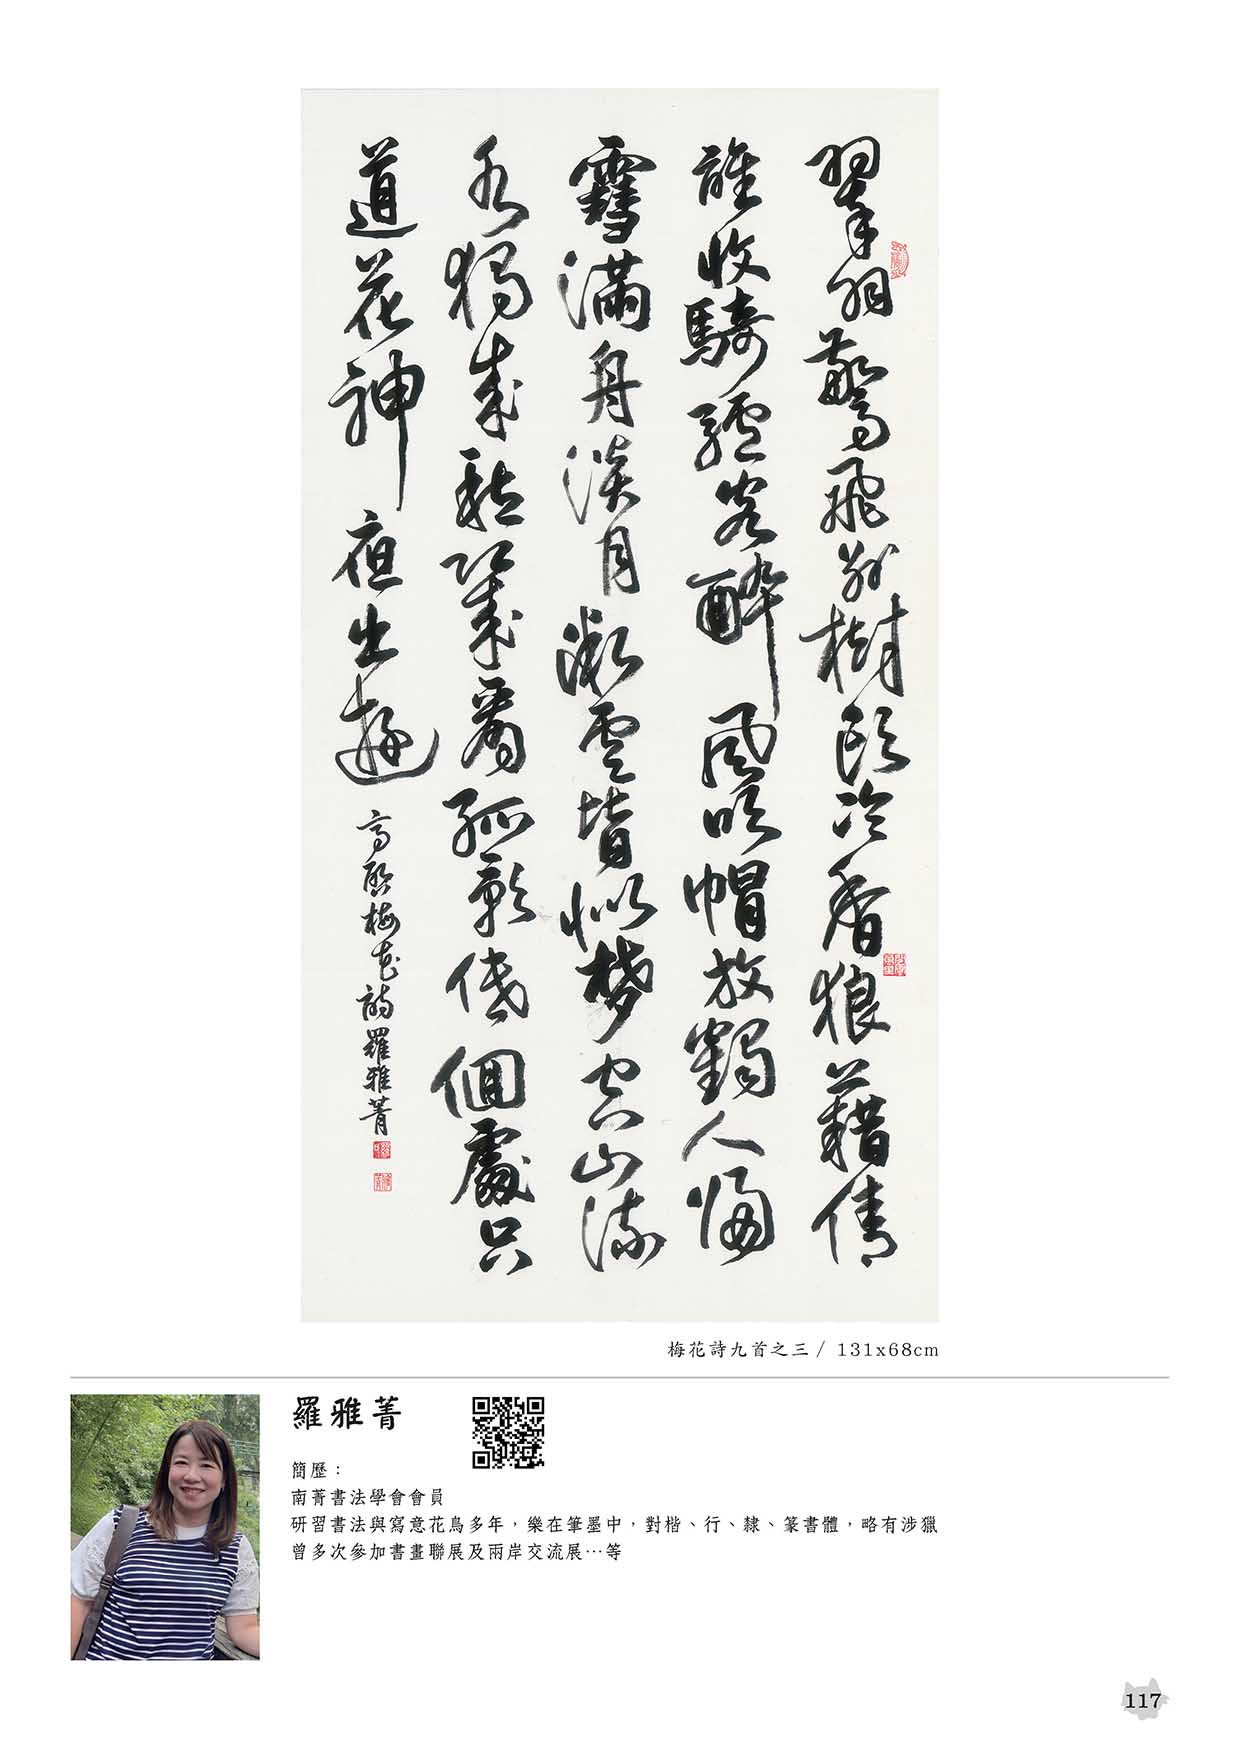 翠羽驚飛別樹頭冷香狼藉倩
誰收騎驢客醉風吹帽放鶴人歸
雪滿舟淡月微雲皆似夢空山流
水獨成愁幾看孤影低佪處只
道花神夜出遊
高啟梅花詩羅雅菁
梅花詩九首之三 / 131x68cm
羅雅菁
簡歷：
南菁書法學會會員
研習書法與寫意花鳥多年，樂在筆墨中，對楷、行、隸、篆書體，略有涉獵
曾多次參加書畫聯展及兩岸交流展…等
117